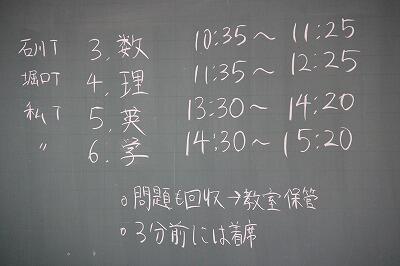 石川T 3. 数 10:35〜11:25
堀口T 4. 理 11:35〜12:25
私T 5. 英 13:30〜14:20
〃 6. 学 14:30〜15:20
○問題も回収→教室保管
○3分前には着席